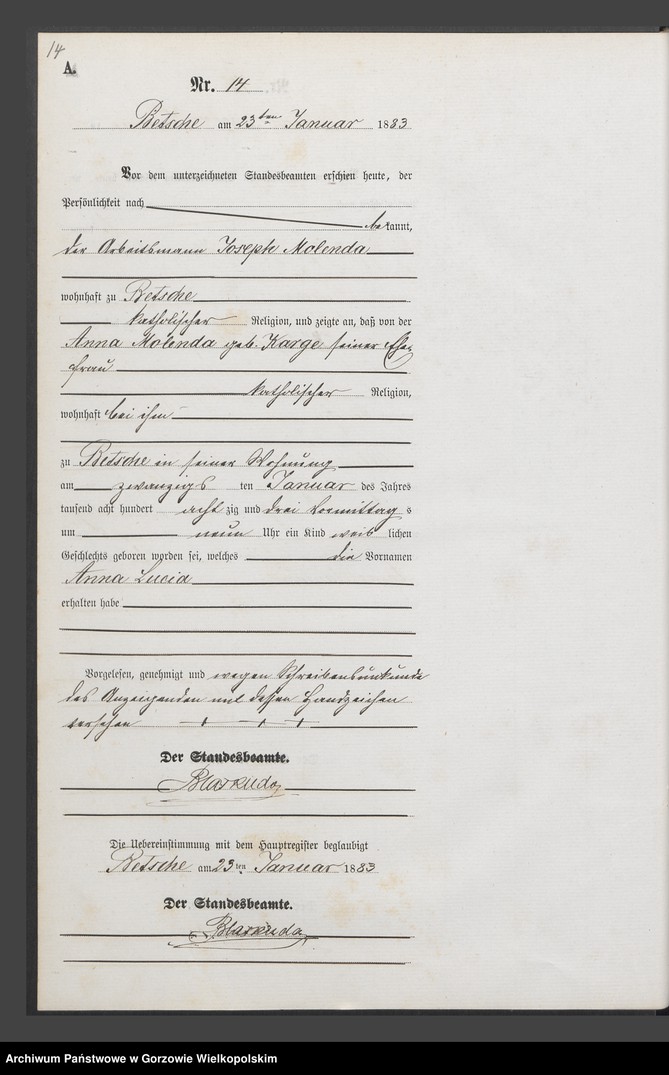 14
A.
Nr. 14
Betsche am 23ten Januar 1883
Vor dem unterzeichneten Standesbeamten erschien heute, der
Persönlichkeit nach
bekannt,
der Arbeitsmann Joseph Molenda
wohnhaft zu Betsche
katholischer Religion, und zeigte an, daß von der
Anna Molenda geb. Karge, seiner Ehe-
frau
katholischer Religion,
wohnhaft bei ihm
zu Betsche in seiner Wohnung
am zwanzigs ten Januar des Jahres
tausend acht hundert acht zig und drei Vormittag s
um neun Uhr ein Kind weib lichen
Geschlechts geboren worden sei, welches die Vornamen
Anna Lucia
erhalten habe
Vorgelesen, genehmigt und wegen Schreibensunkunde
des Anzeigenden mit dessen Handzeichen
versehen + + +
Der Standesbeamte.
Die Uebereinstimmung mit dem Hauptregister beglaubigt
Betsche am 23ten Januar 1883
Der Standesbeamte.
Archiwum Państwowe w Gorzowie Wielkopolskim